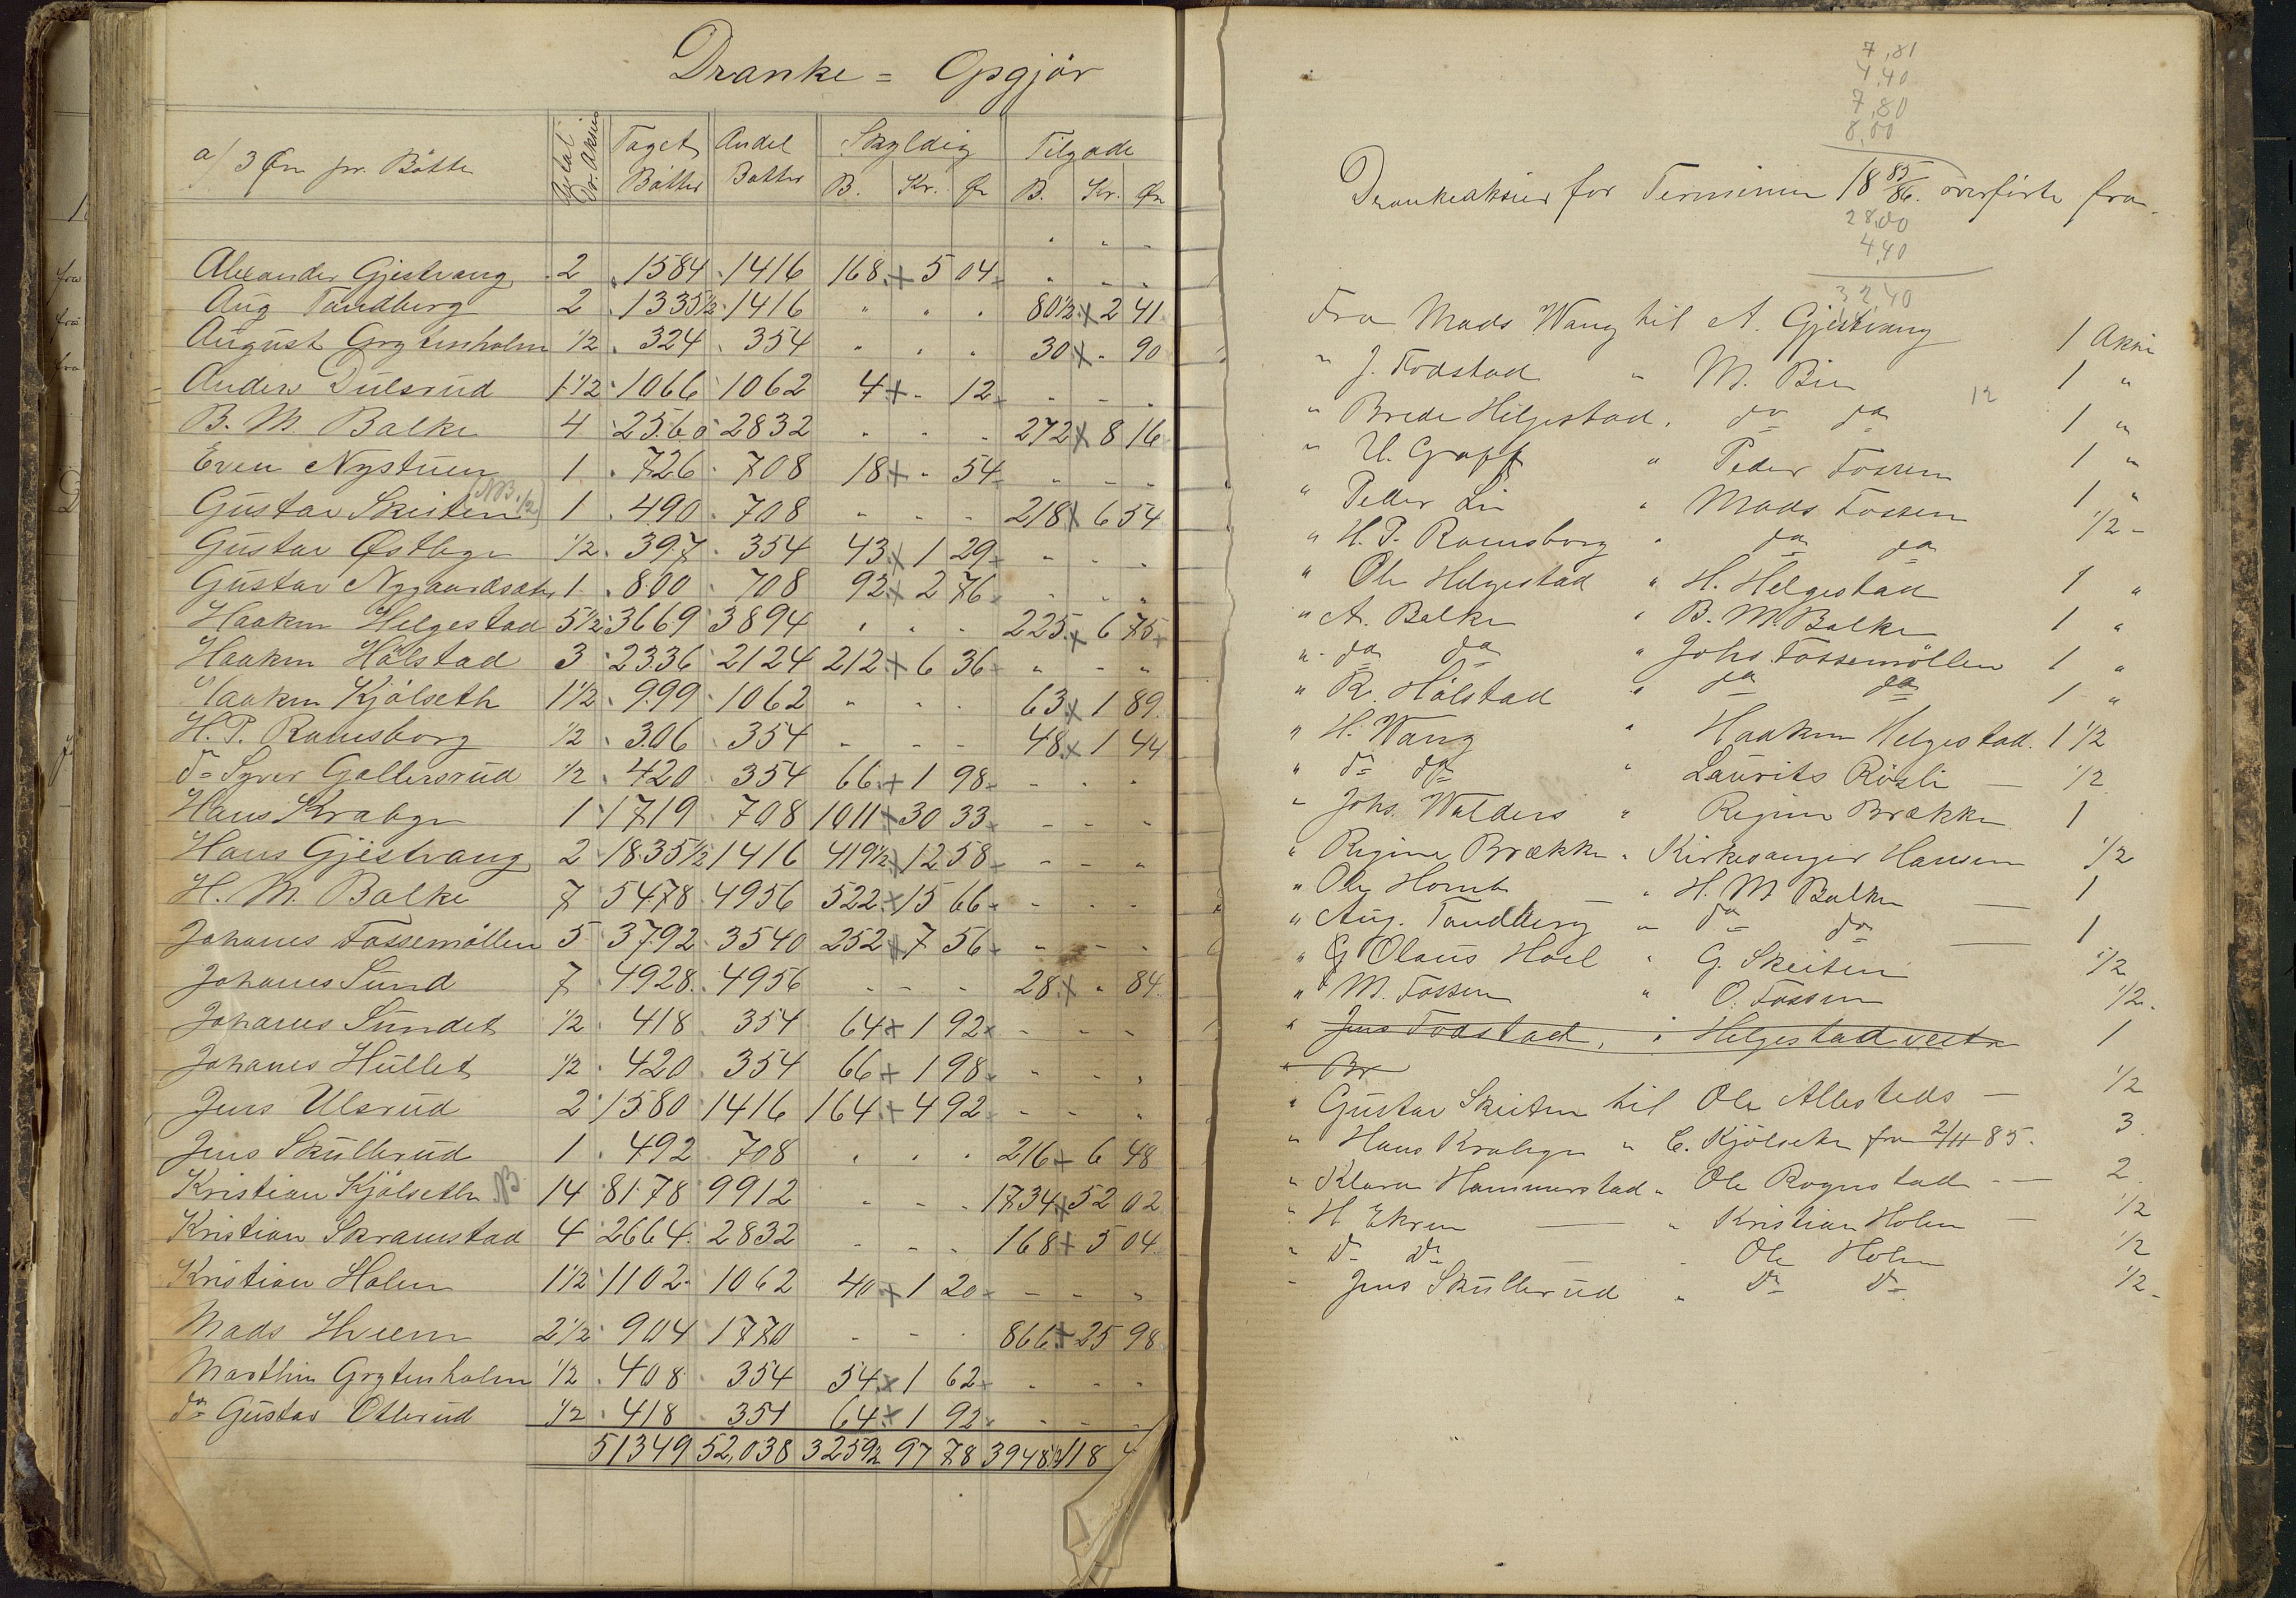 Dranke = Opgjör
a/ 3 Øre pr. Bötte Antal Dr. Aksier Taget Bötter Andel Bötter Skyldig B. Kr. Ør Tilgode B. Kr. Øre
Alexander Gjestvang 2 1584 1416 168 5 04 " " "
Aug Tandberg 2 1335 1/2 1416 " " " 80 1/2 2 41
August Grytenholm 1/2 324 354 " " " 30 " 90
Anders Dulsrud 1 1/2 1066 1062 4 " 12 " " "
B. M. Balke 4 2560 2832 " " " 272 8 16
Even Nystuen 1 726 708 18 " 54 " " "
Gustav Skeiten (NB. 1/2) 1 490 708 " " " 218 6 54
Gustav Østbye 1/2 397 354 43 1 29 " " "
Gustav Nygaardsæter 1 800 708 92 2 76 " " "
Haakon Helgestad 5 1/2 3669 3894 " " " 225 6 75
Haakon Hólstad 3 2336 2124 212 6 36 " " "
Haakon Kjölseth 1 1/2 999 1062 " " " 63 1 89
H. P. Ramsborg 1/2 306 354 " " " 48 1 44
do Syver Gallersrud 1/2 420 354 66 1 98 " " "
Hans Krabye 1 1719 708 1011 30 33 " " "
Hans Gjestvang 2 1835 1/2 1416 419 1/2 12 58 " " "
H. M. Balke 7 5478 4956 522 15 66 " " "
Johanes Fossemöllen 5 3792 3540 252 7 56 " " "
Johanes Sund 7 4928 4956 " " " 28 " 84
Johanes Sundet 1/2 418 354 64 1 92 " " "
Johanes Hullet 1/2 420 354 66 1 98 " " "
Jens Ulsrud 2 1580 1416 164 4 92 " " "
Jens Skullerud 1 492 708 " " " 216 6 48
Kristian Kjölseth NB 14 8178 9912 " " " 1734 52 02
Kristian Skramstad 4 2664 2832 " " " 168 5 04
Kristian Holen 1 1/2 1102 1062 40 1 20 " " "
Mads Hveem 2 1/2 904 1770 " " " 866 25 98
Marthin Grytenholm 1/2 408 354 54 1 62 " " "
do Gustav Ottersrud 1/2 418 354 64 1 92 " " "
51349 52,038 3259 1/2 97 78 3948 1/2 118 4
7,81
4,40
7,80
8,00
Drankeaksier for Terminen 18 85/86. överförte fra
28,00
4,40
32,40
Fra Mads Wang til A. Gjestvang 1 Aksie
" J. Todstad " M. Bie 12 1 "
" Brede Helgestad " do do 1 "
" U. Graff " Peder Fossen 1 "
" Peder Lie " Mads Fossen 1 "
" H. P. Ramsborg " do do 1/2 "
" Ole Helgestad " H. Helgestad 1 "
" A. Balke " B. M Balke 1 "
" do do " Johs. Fossemöllen 1 "
" R. Hólstad " do do 1 "
" H. Wang " Haakon Helgestad. 1 1/2
" do do " Laurits Rösli — 1/2
" Johs. Walders " Regine Brække 1
" Regine Brække " Kirkesanger Hansen 1/2
" Ole Homb " H. M Balke — 1
" Aug. Tandberg " do do — 1
" G Olaus Hoel " G. Skeiten 1/2
" M. Fossen " O. Fossen 1/2.
" Jens Todstad " Helgestad vestre 1
" Br
" Gustav Skeiten til Ole Allesteds — 1/2
" Hans Krabye " C. Kjölseth fra 2/11 85. 3
" Klara Hammerstad " Ole Rognstad — 2
" H Ekren — " Kristian Holen — 1/2
" do do — " Ole Holen 1/2
" Jens Skullerud " do do 1/2